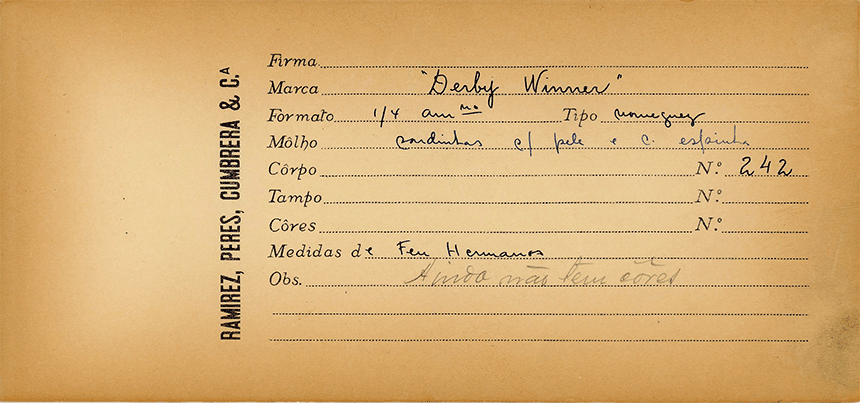 RAMIREZ, PERES, CUMBRERA & C.ª
Firma
Marca "Derby Winner"
Formato 1/4 amno Tipo norueguez
Môlho sardinhas c/ pele e c. espinha
Côrpo N.º 242
Tampo N.º
Côres N.º
Medidas de Feu Hermanos
Obs. Ainda não tem côres